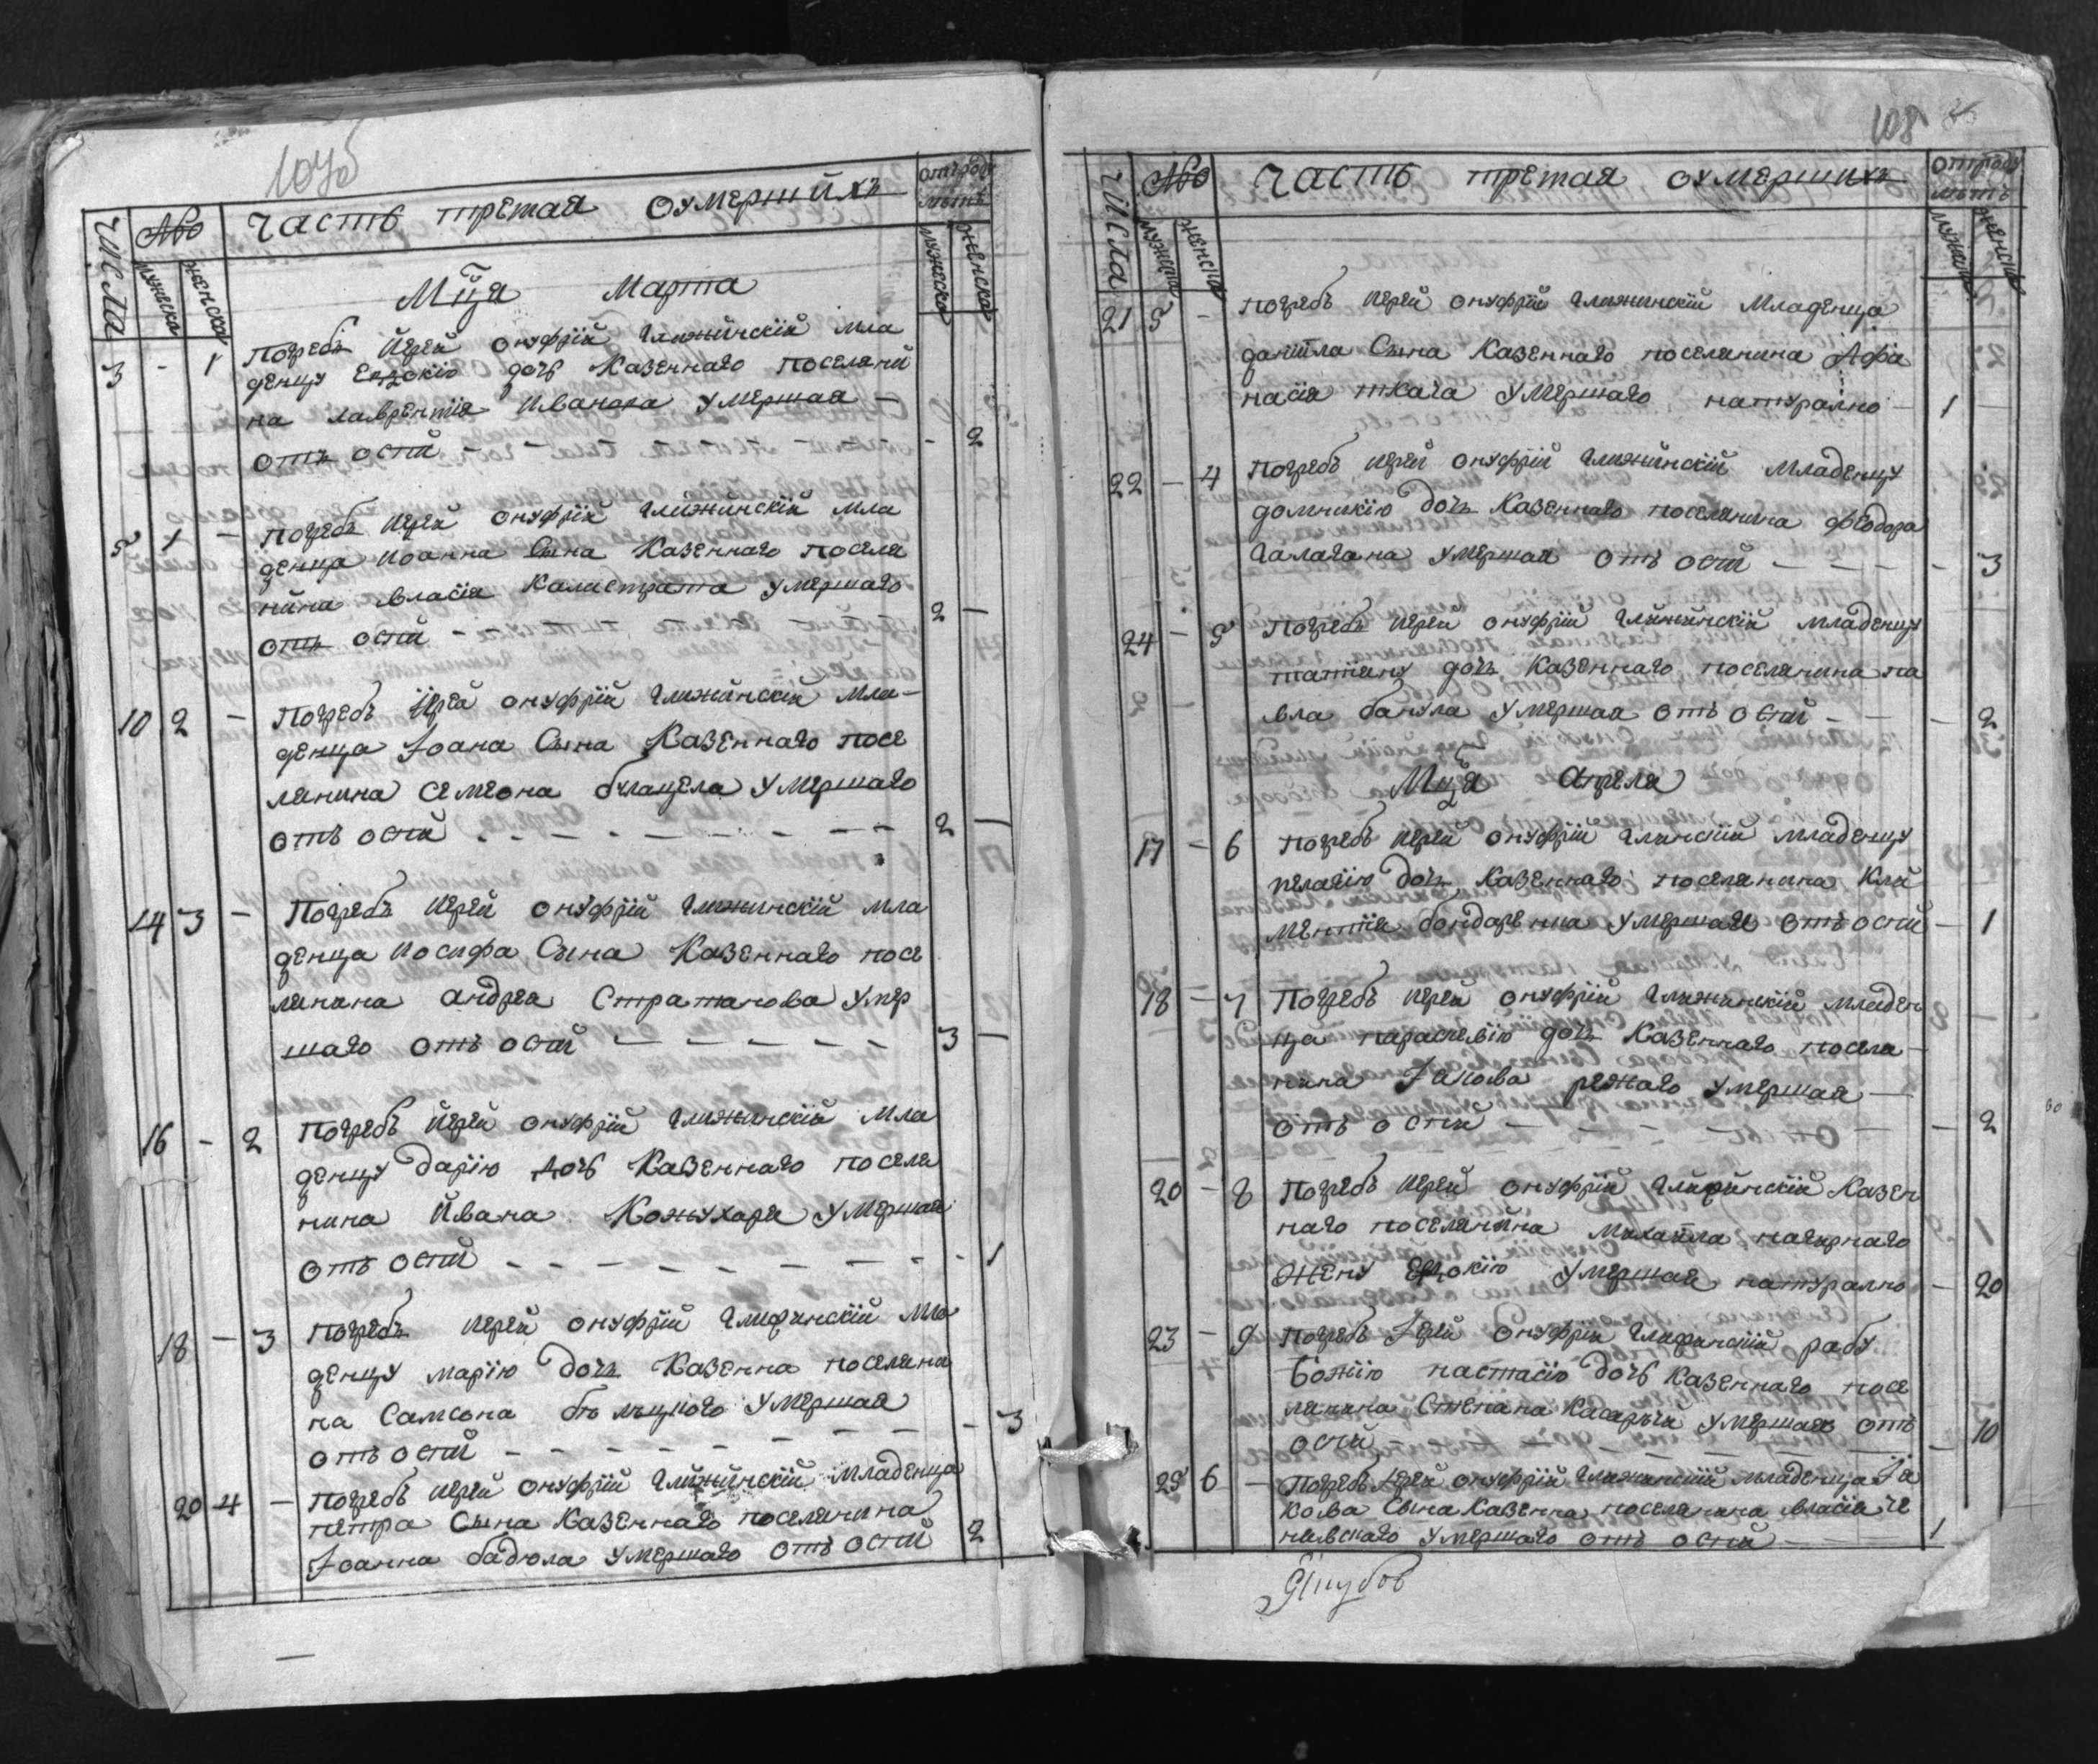 107об
Числа № Часть третая оумершихъ отроду лѣтъ
мужеска женска мужеска женска
Мц̃а Марта
3 - 1 Погребъ Иерей Онуфрїй Глижинскїй мла
денцу Евдокїю дочь Казеннаго поселяни
на Лаврентїя Иванова умершая -
отъ оспи - - - 2
5 1 - Погребъ Иерей Онуфрїй Глижинскїй мла
денца Иоанна Сына Казеннаго поселя
нина Власїя Калистрата умершаго
отъ оспи - 2 -
10 2 - Погребъ Іерей Онуфрїй Глижинскїй мла-
денца Іоана Сына Казеннаго посе
лянина Семеона умершаго
отъ оспи - 2 -
14 3 - Погребъ Иерей Онуфрїй Глижинскїй мла
денца Иосифа Сына Казеннаго посе
лянина Андрея Стратанова умер
шаго отъ оспи - 3 -
16 - 2 Погребъ Иерей Онуфрїй Глижинскїй мла
денцу Дарїю дочь Казеннаго поселя
нина Ивана Кожухаря умершая
отъ оспи - 1
18 - 3 Погребъ Иерей Онуфрїй Глижинскїй мла
денцу Марїю дочь Казенна поселяни
на Самсона умершая
отъ оспи - 3
20 4 - Погребъ Иерей Онуфрїй Глижинскїй младенца
Петра Сына Казеннаго поселянина
Іоанна Бадюла умершаго отъ оспи 2
108
Числа № Часть третая оумершихъ отроду лѣтъ
мужеска женска мужеска женска
21 5 - Погребъ Иерей Онуфрїй Глижинскїй Младенца
Данїила Сына Казеннаго поселянина Афа
насїя Ткача умершаго натурално - 1 -
22 - 4 Погребъ Иерей Онуфрїй Глижинскїй Младенцу
Домникїю дочь Казеннаго поселянина Феодора
Галагана умершая отъ оспи - 3
24 - 5 Погребъ Иерей Онуфрїй Глижинскїй младенцу
Татїяну дочь Казеннаго поселянина Па
вла Банула умершая отъ оспи - 2
Мц̃а Апреля
17 - 6 Погребъ Иерей Онуфрїй Глинскїй младенцу
Пелагїю дочь Казеннаго поселянина Кли
ментїя Бондаренка умершая отъ оспи - 1
18 - 7 Погребъ Иерей Онуфрїй Глижинскїй младен
ца Параскевїю дочь Казеннаго поселя-
нина Іакова режаго умершая -
отъ оспи - 2
20 - 8 Погребъ Иерей Онуфрїй Глижинскїй Казен
наго поселянина Михаила
жену Евдокїю умершая натурално - 20
23 - 9 Погребъ Іерей Онуфрїй Глижинскїй рабу
Божїю Настасїю дочь Казеннаго посе
лянина Степана умершая отъ
оспи - 10
25 6 - Погребъ Іерей Онуфрїй Глижинскїй младенца Іа
кова Сына Казенна поселянина Власїя Че
навскаго умершаго отъ оспи - 1